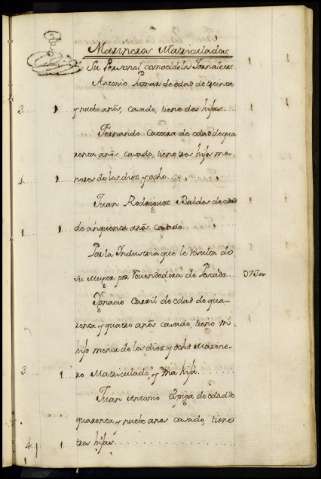 Marineros Matriculados
Su Personal como de los Jornaleros
Antonio de edad de treinta
2 y nuebe años, casado, tiene dos hijas 1
Fernando Carrera de edad de qua
renta años casado, tiene tres hijos me
4 1 nores de los diez y ocho 1
Juan Rodriguez Valdes de edad
1 de cinquenta años casado 1
Por la Industria que le resulta de
su Muger por Vendedora de Pescado
Ignacio de edad de qua
renta y quatro años casado, tiene un
hijo menor de los diez y ocho Marine
3 1 ro Matriculado, y una hija
Juan Antonio de edad de
quarenta y nuebe años casado tiene
4 1 tres hijas